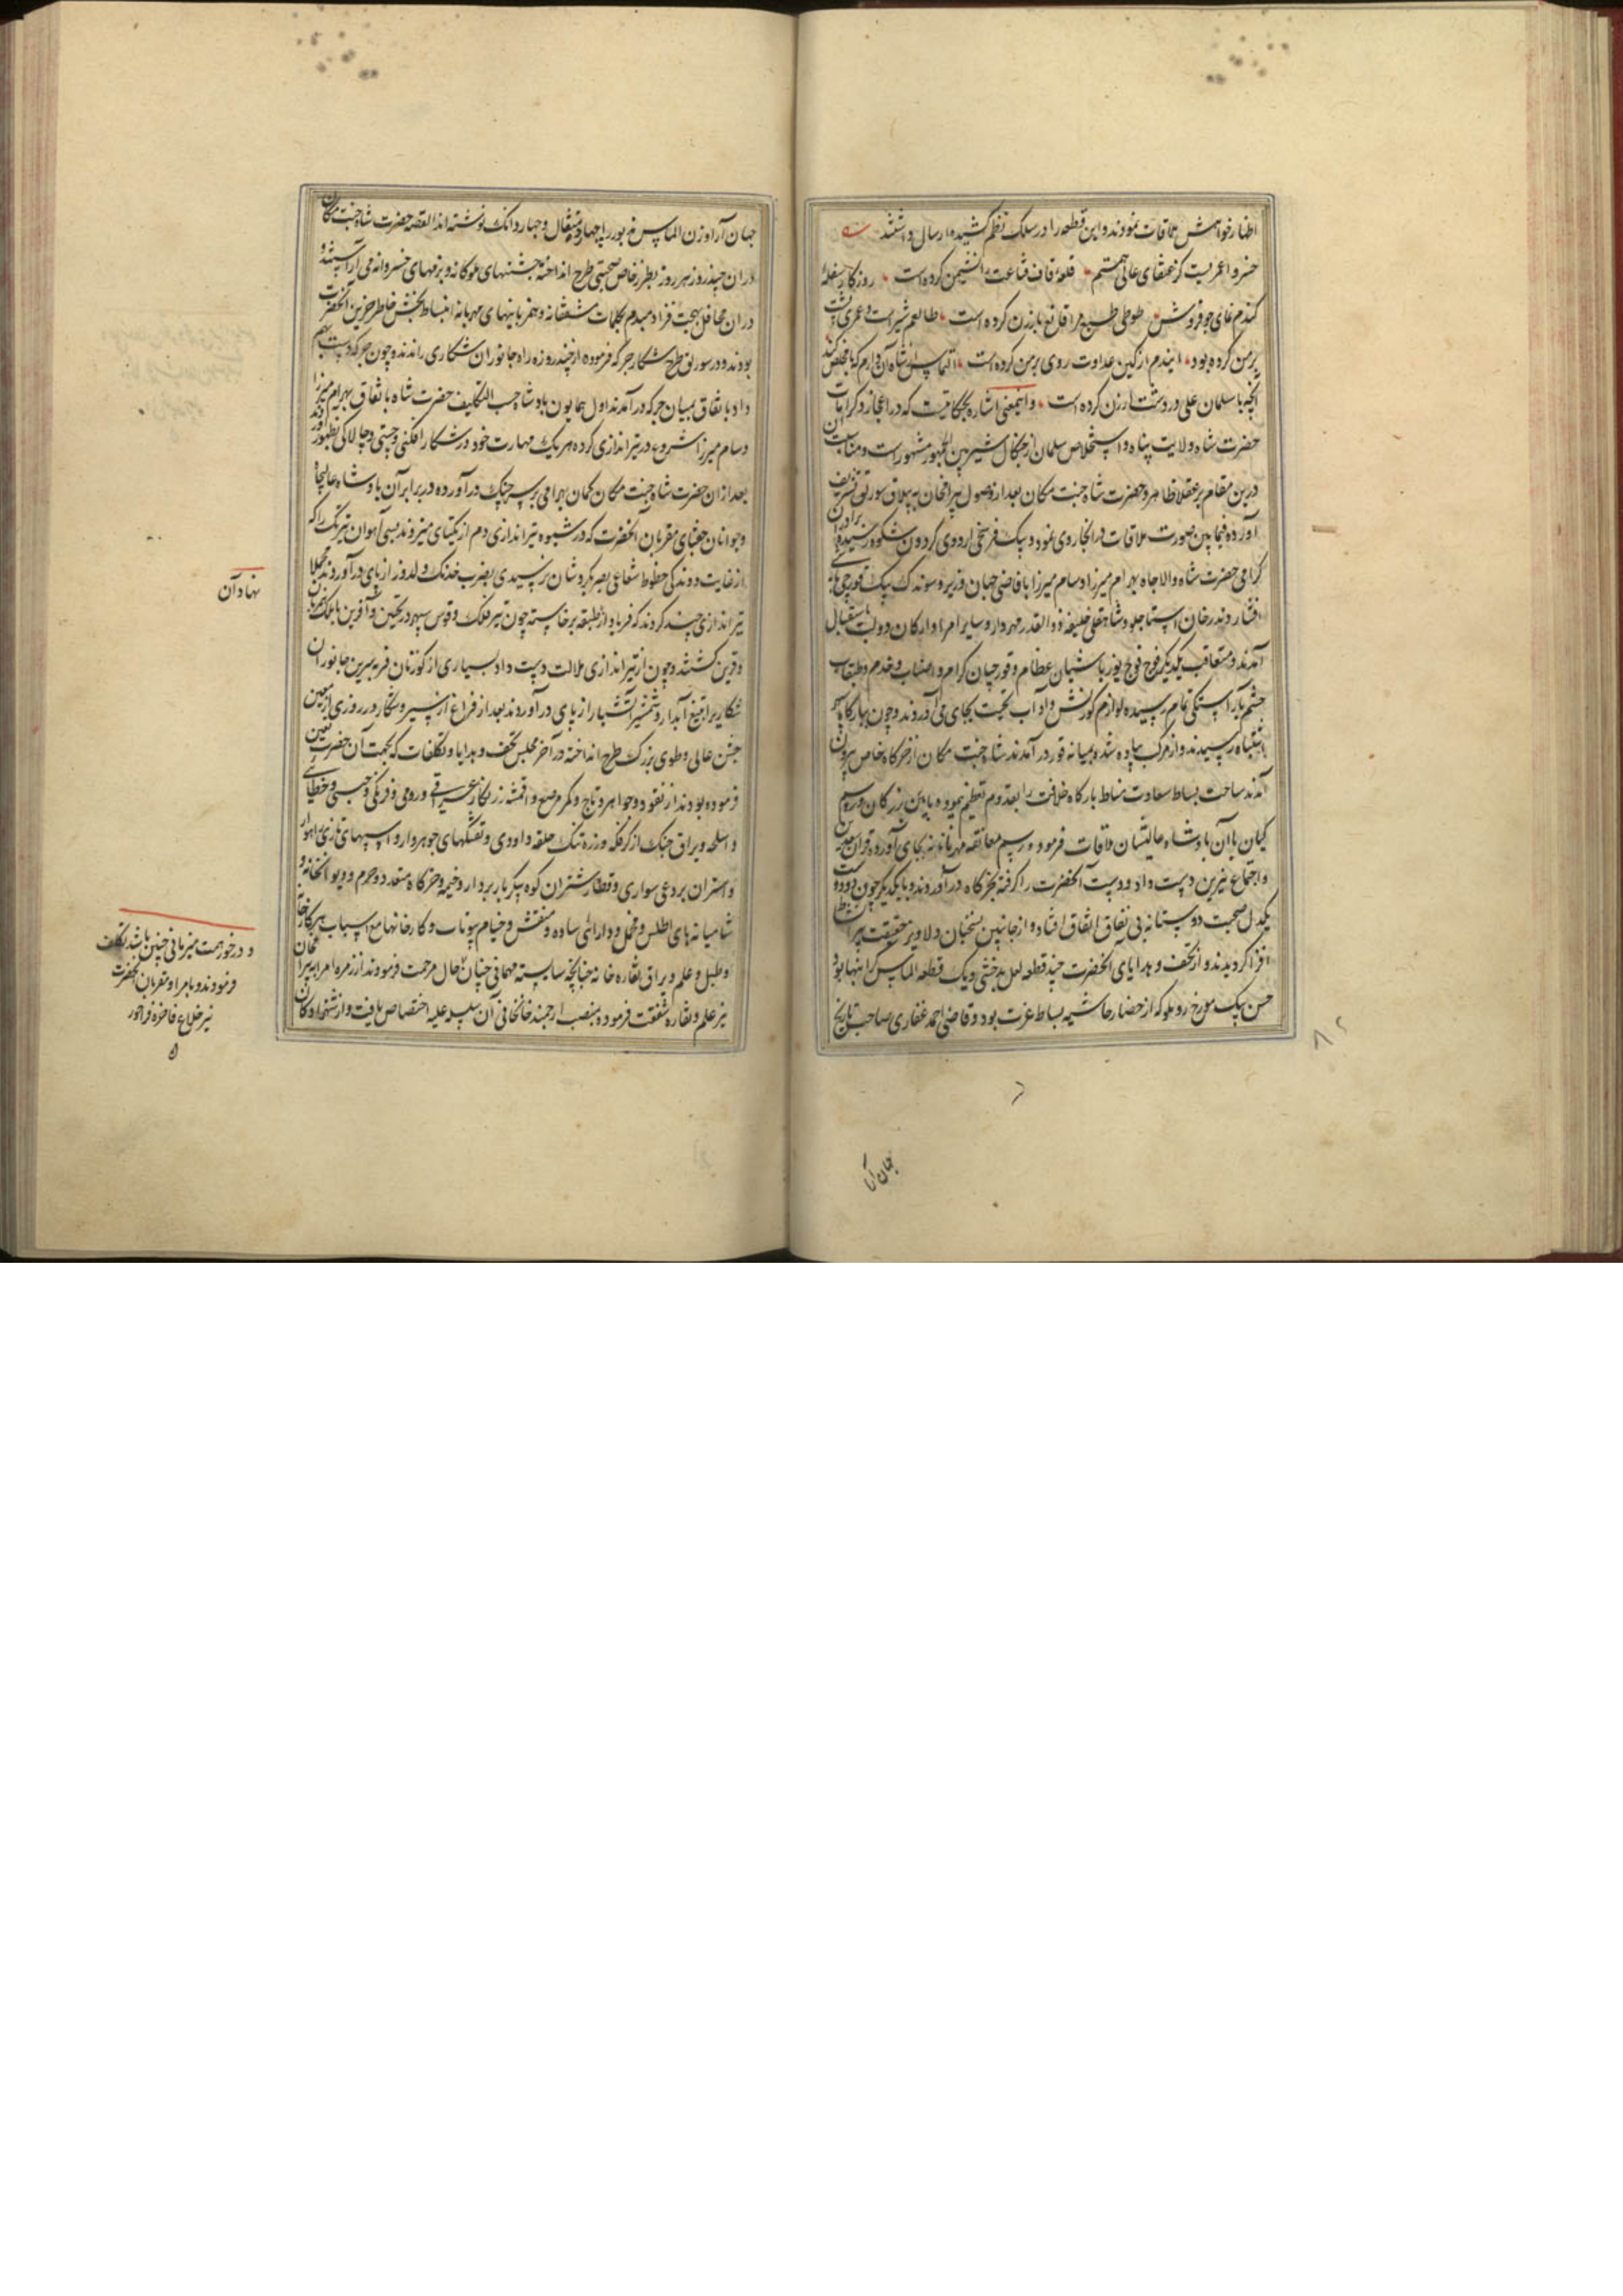 اظهار خواهش ملاقات نمودند و این قطعه را در سلک نظم کشیده ارسال داشتند
خسروا عمریست کز عنقای عالی همتم قله قاف قناعت را نشیمن کرده است روزگار سفله
گندم نمای جو فروش طوطی طبع مرا قانع بارزن کرده است طالعم شیر است و عمری پشت
بر من کرده بود ایندم از کین عداوت روی بر من کرده است التماس از شاه آن دارم که با مخلص کند
آنچه با سلمان علی در دشت ارزن کرده است و اینمعنی اشاره بحکایتیست که در اعجاز و کرامات
حضرت شاه ولایت پناه و استخلاص سلمان از چنگال شیر بین الجمهور مشهور است و مناسبت آن
درین مقام بر عقلا ظاهر و حضرت شاه جنت مکان بعد از وصول بیرامخان به ییلاق سورلق تشریف
آورده فیمابین صورت ملاقات در انجا روی نمود و یک فرسخی اردوی گردون شکوه رسیده برادران
گرامی حضرت شاه والاجاه بهرام میرزا و سام میرزا با قاضی جهان وزیر و سوندک بیک قورچی باشی
افشار و بدر خان استاجلو و شاهقلی خلیفه ذوالقدر مهردار و سایر امرا و ارکان دولت باستقبال
آمدند و متعاقب یکدیگر فوج فوج یوزباشیان عظام و قورچیان کرام و اصناف خدم و طبقات
حشم بآراستگی تمام رسیده لوازم کورنش و آداب تحیت بجای می آوردند و چون ببارگاه سپهر
اشتباه رسیدند و از مرکب پیاده شده بمیانه قور در آمدند شاه جنت مکان از خرگاه خاص بیرون
آمدند ساحت بساط سعادت مناط بارگاه خلافت را بقدوم تعظیم پیمود و بآیین بزرگان و رسم
کیان با آن پادشاه عالیشان ملاقات فرمود و رسم معانقه مهربانانه بجای آورده قران سعدین
و اجتماع نیرین دست داد و دست آنحضرت را گرفته بخرگاه در آوردند و با یکدیگر چون دو دوست
یکدل صحبت دوستانه بی نفاق اتفاق افتاده و از جانبین بسخنان دلاویز حقیقت پیرا نشاط
افزا گردیدند و از تحف و هدایای آنحضرت چند قطعه لعل بدخشی و یک قطعه الماس گرانبها بود
حسن بیک مورخ روملو که از حضار حاشیه بساط عزت بود و قاضی احمد غفاری صاحب تاریخ
جهان آرا
جهان آرا وزن الماس مزبور را چهار مثقال و چهار دانک نوشته اند القصه حضرت شاه جنت مکان
در ان چند روز هر روز بطرز خاص صحبتی طرح انداخته جشنهای ملوکانه و بزمهای خسروانه می آراستند و
در ان محافل بهجت فزا دمبدم بکلمات مشفقانه و همزبانیهای مهربانه انبساط بخش خاطر حزین آنحضرت
بودند و در سورلق طرح شکار جرگه فرموده از چند روزه راه جانوران شکاری راندند و چون جرگه دست بهم
داد باتفاق بمیان جرگه در آمدند اول همایون پادشاه حسب التکلیف حضرت شاه باتفاق بهرام میرزا
و سام میرزا شروع در تیراندازی کرده هر یک مهارت خود در شکار افکنی و چستی و چالاکی بظهور آوردند
بعد از ان حضرت شاه جنت مکان کمان بهرامی بر سر چنگ در آورده در برابر آن پادشاه عالیجاه
و جوانان جغتای مقربان آنحضرت که در شیوه تیراندازی دم از یکتای میزدند بسی آهوان تیزتک را که
از غایت دوندگی خطوط شعاعی بصر بگردشان نرسیدی بضرب خدنک دلدوز از پای در آوردند مجملا
تیراندازی چند کردند که فریاد از طبقه برخاسته چون تیر فلک و قوس سپهر در تحسین و آفرین با ملک همزبان
و قرین گشتند و چون از تیراندازی ملالت دست داد بسیاری از گوزنان فربه سرین جانوران
شکاری را بتیغ آبدار و شمشیر آتشبار از پای در آوردند بعد از فراغ از سیر و شکار در روزی از معین
جشن عالی و طوی بزرک طرح انداخته در آخر مجلس تحف و هدایا و تکلفات که بجهت آن حضرت تعیین
فرموده بودند از نقود و جواهر و تاج و کمر مرصع و اقمشه زرنگار عراقی و رومی و فرنکی و چینی و خطایی
و اسلحه و یراق جنک از کرفکه و زره تنک حلقه داودی و تفنگهای جوهردار و اسپهای تازی راهوار
و استران بردعی سواری و قطار شتران کوه پیکر باربردار و خیمه و خرگاه متعدد و حرم و دیوانخانه و
شامیانه های اطلس و مخمل و دارائی ساده و منقش و خیام یوتات و کارخانها مع اسباب هر کارخانه
و طبل و علم و یراق نقاره خانه چنانچه شایسته مهمانی چنان حال مرحمت فرمودند از زمره امرا به بیرامخان
نیز علم و نقاره شفقت فرموده بمنصب ارجمند خانخانی آن سلسله علیه اختصاص یافت و از شهزادگان
نهاد آن
و در خور همت میزبانی چنین باشد تکلف
فرمودند و بامرا و مقربان آنحضرت
نیز خلاع فاخره فراخور